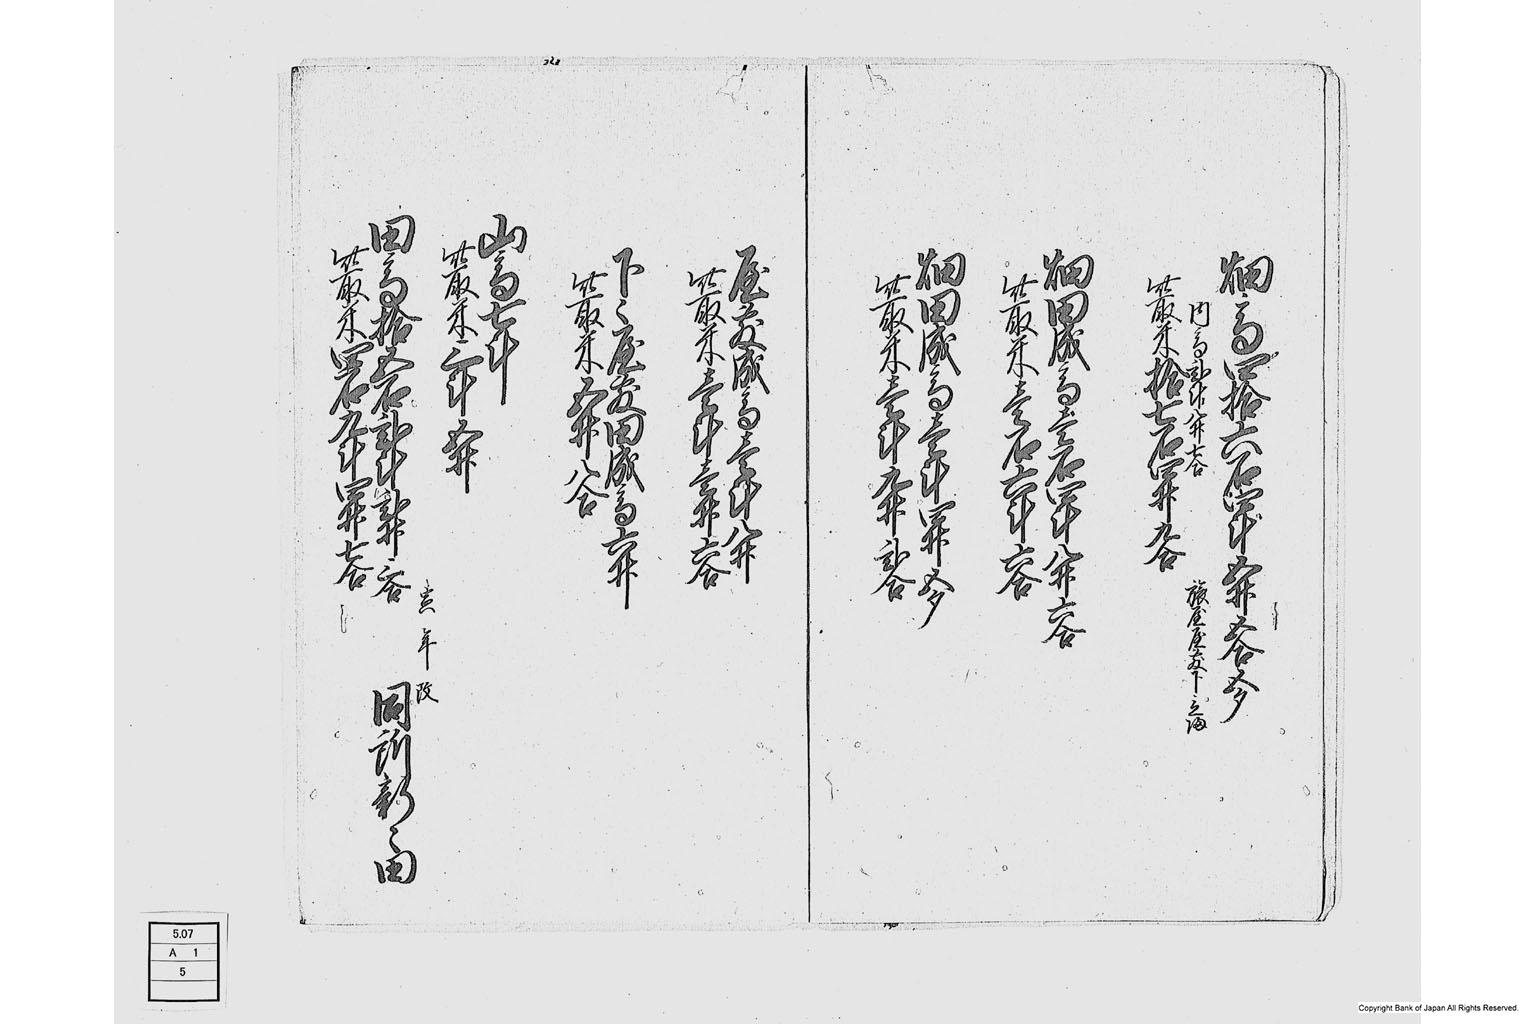 畑高四拾六石四斗五升五合五夕
内高弐斗八升七合
旅屋屋敷下
此取米拾七石四升九合
畑田成高壱石四斗八升六合
此取米壱石六斗六合
畑田成高壱斗四升五夕
此取米壱斗九升弐合
屋敷成高壱斗八升
此取米壱斗壱升六合
下々屋敷田成高六升
此取米五升八合
山高七斗
此取米三斗五升
寅年改
田高拾五石弐斗弐升三合
同所新田
此取米四石九斗四升七合
5.07
A 1
5
Copyright Bank of Japan All Rights Reserved.